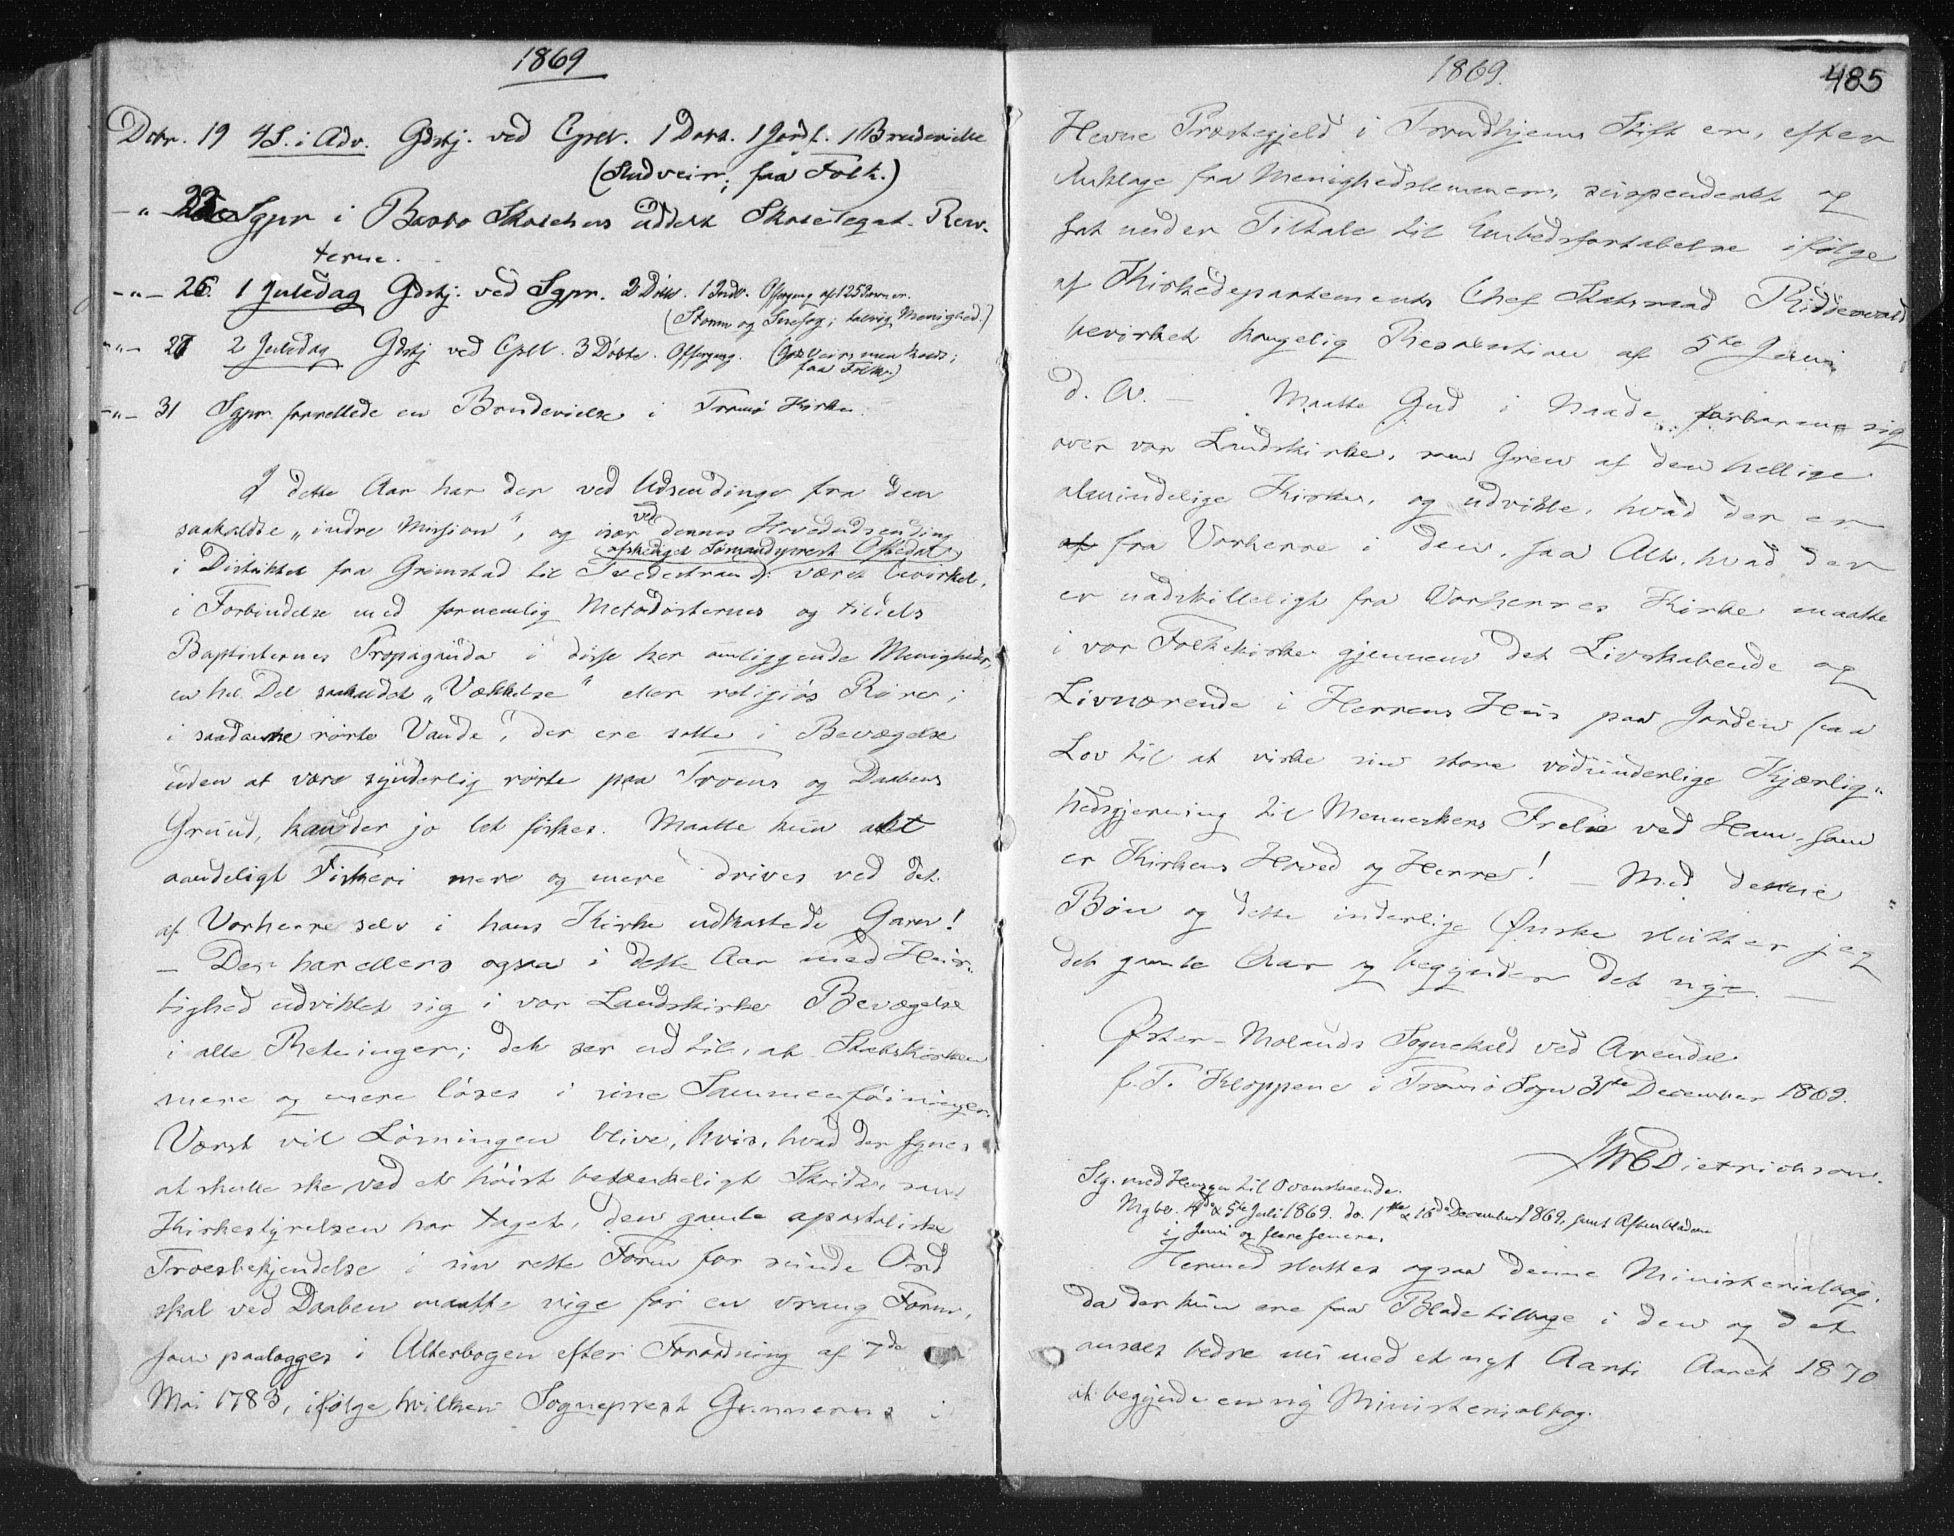 1869
Dcbr. 19 4 S. i Adv. Gdstj. ved Cplt. 1 Døbt. 1 Jordf. 1 Brudevielse
(Sludveir; faa Folk.)
-"- 22 Sgpr i Barbo Skolehus uddelt Skolelegat-Ren-
terne.
-"- 25. 1 Juledag Gdstj. ved Sgpr. 2 Døbt. 1 Introd. Offergang af 125 Personer.
(Storm og Snefog; talrig Menighed.)
-"- 26 2 Juledag Gdstj ved Cplt. 3 Døbte. Offergang. (Godt Veir men koldt;
faa Folk.)
-"- 31 Sgpr forrettede en Brudevielse i Tromø Kirke.
I dette Aar har der ved Udsendinge fra den
saakaldte "indre Mission", og især ved dennes Hovedudsending
(afskediget Sømandsprest Oftedal)
i Distriktet fra Grimstad til Tvedestrand været virket,
i Forbindelse med fornemlig Metodisternes og tildels
Baptisternes Propaganda i disse her omliggende Menigheder,
en hel Del saakaldet "Vækkelse" eller religiøs Røre;
i saadanne rørte Vande, der ere satte i Bevægelse
uden at være synderlig rørte paa Troens og Daabens
Grund, kan der jo let fiskes. Maatte kun alt
aandeligt Fiskeri mere og mere drives ved det
af Vorherre selv i hans Kirke udkastede Garn!
— Der har ellers ogsaa i dette Aar med Hur-
tighed udviklet sig i vor Landskirke Bevægelse
i alle Retninger; det ser ud til, at Statskirken
mere og mere løses i sine Sammenføininger.
Værst vil Løsningen blive, hvis, hvad der synes
at skulle ske ved et høist betænkeligt Skridt, som
Kirkestyrelsen har taget, den gamle apostoliske
Troesbekjendelse i sin rette Form for sunde Ord
skal ved Daaben maatte vige for en vrang Form,
som paalægges i Alterbogen efter Forordning af 7de
Mai 1783, ifølge hvilken Sogneprest Gunnerus i
1869.
485
Hevne Præstegjeld i Trondhjems Stift er, efter
Anklage fra Menighedslemmer, suspenderet og
sat under Tiltale til Embedsfortabelse ifølge
af Kirkedepartements Chef Statsraad Riddervold
bevirket kongelig Resolution af 5te Juni
d. A. — Maatte Gud i Naade forbarme sig
over vor Landskirke, som Gren af den hellige
almindelige Kirke, og udvikle, hvad der er
af fra Vorherre i den, saa Alt, hvad der
er uadskilleligt fra Vorherres Kirke maatte
i vor Folkekirke gjennem det Livskabende og
Livnærende i Herrens Hus paa Jorden faa
Lov til at virke sin store vidunderlige Kjærlig-
hedsgjerning til Menneskers Frelse ved Ham, som
er Kirkens Hoved og Herre! — Med denne
Bøn og dette inderlige Ønske slutter jeg
det gamle Aar og begynder det nye. —
Øster-Molands Sognekald ved Arendal
p. T. Kloppene i Tromø Sogn 31te December 1869.
JWCDietrichson.
Slg. med Hensyn til Ovenstaaende.
Mgbl. 4de & 5te Juli 1869. do. 1ste & 16de December 1869, samt Aftenbladene
i Juni og flere senere.
Hermed sluttes ogsaa denne Ministerialbog,
da der kun ere faa Blade tilbage i den og det
ansees bedre nu med et nyt Aarti Aaret 1870
at begynde en ny Ministerialbog.